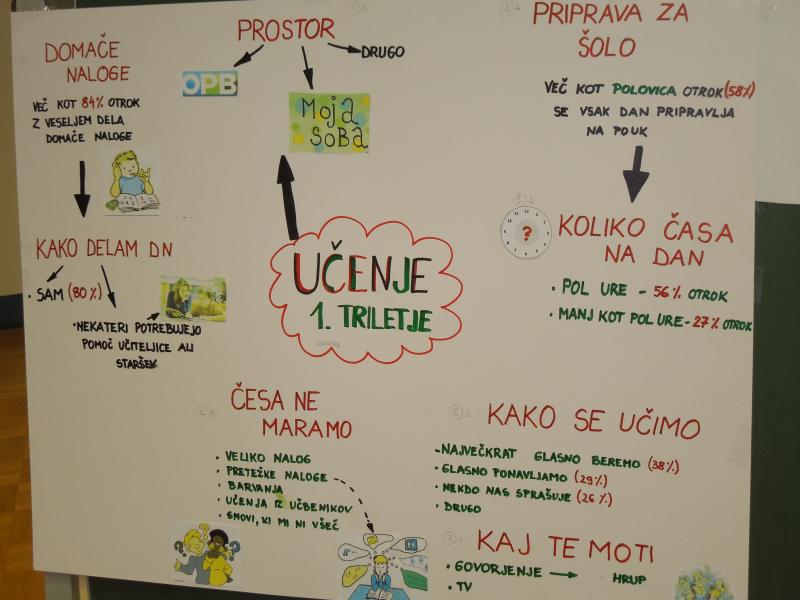 DOMAČE
NALOGE
VEČ KOT 84% OTROK
Z VESELJEM DELA
DOMAČE NALOGE
KAKO DELAM DN
• SAM (80%)
• NEKATERI POTREBUJEJO
POMOČ UČITELJICE ALI
STARŠEV
PROSTOR
OPB
MOJA
SOBA
DRUGO
UČENJE
1. TRILETJE
PRIPRAVA ZA
ŠOLO
VEČ KOT POLOVICA OTROK (58%)
SE VSAK DAN PRIPRAVLJA
NA POUK
?
KOLIKO ČASA
NA DAN
• POL URE - 56% OTROK
• MANJ KOT POL URE - 27% OTROK
ČESA NE
MARAMO
• VELIKO NALOG
• PRETEŽKE NALOGE
• BARVANJA
• UČENJA IZ UČBENIKOV
• SNOVI, KI MI NI VŠEČ
KAKO SE UČIMO
- NAJVEČKRAT GLASNO BEREMO (38%)
• GLASNO PONAVLJAMO (29%)
• NEKDO NAS SPRAŠUJE (26%)
• DRUGO
KAJ TE MOTI
• GOVORJENJE → HRUP
• TV